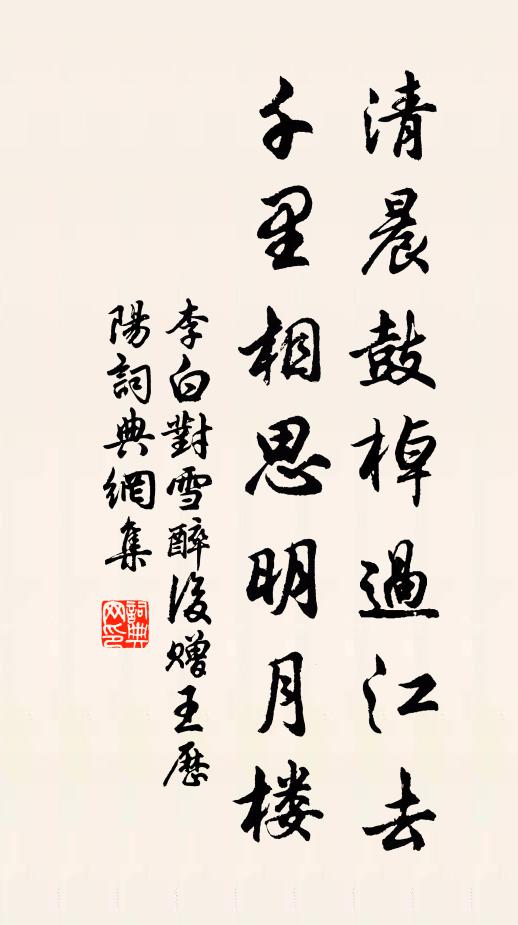 清晨鼓棹過江去
千里相思明月楼
李白對雪醉後贈王歷
陽詞典網集
詞典網印